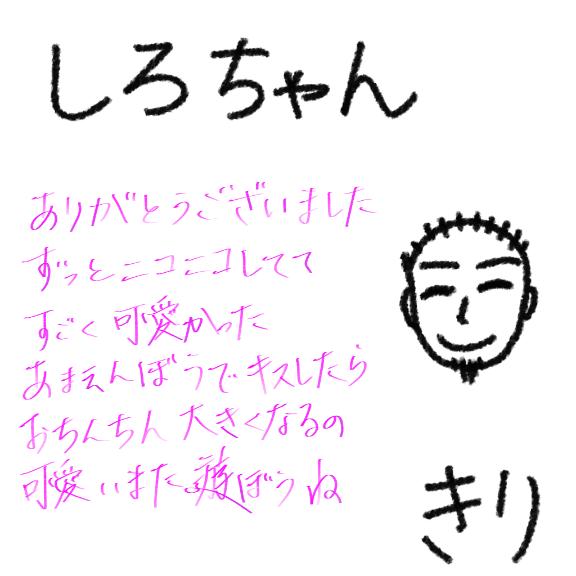 しろちゃん
ありがとうございました
ずっとニコニコしてて
すごく可愛かった
あまえんぼうでキスしたら
おちんちん大きくなるの
可愛いまた遊ぼうね
きり